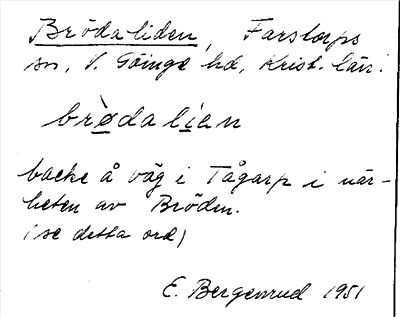 Brödaliden, Farstorps
sn, V. Göinge hd, Krist. län.
brødalien
backe å väg i Tågarp i när-
heten av Bröden.
(se detta ord)
E. Bergenrud 1951